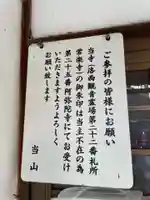 ご参拝の皆様にお願い
当寺（洛西観音霊場第二十二番札所
常楽寺）の御朱印は当主不在の為
第二十五番阿弥陀寺にてお受け
いただきますようよろしく
お願い致します
当山